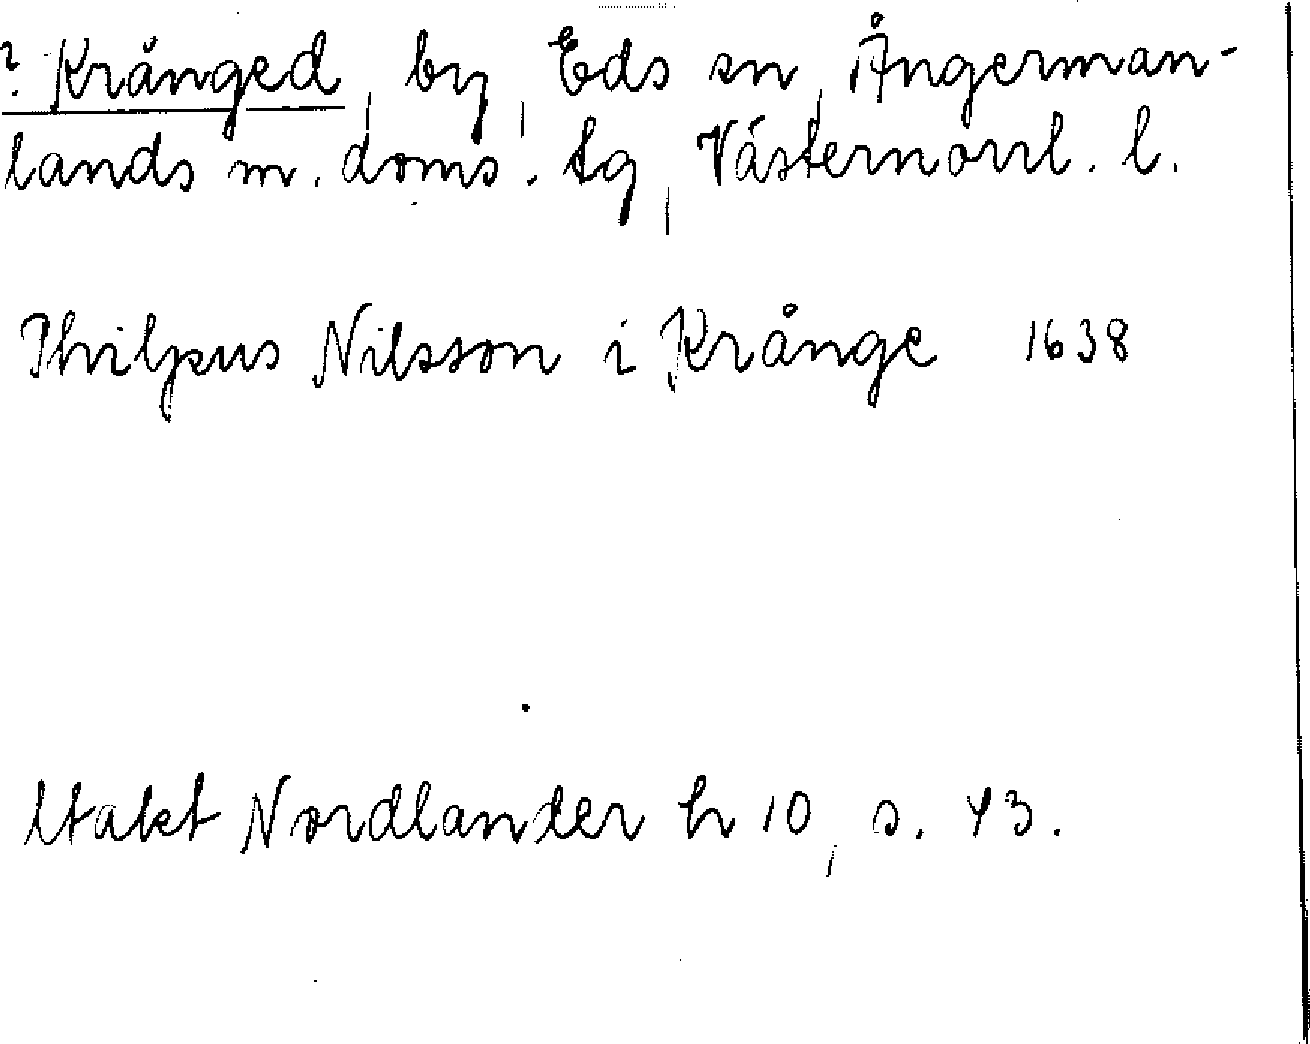 ? Krånged, by, Eds sn, Ångerman-
lands m. doms. tg, Västernorrl. l.
Philpus Nilsson i Krånge 1638
Utakt Nordlander h 10, s. 43.